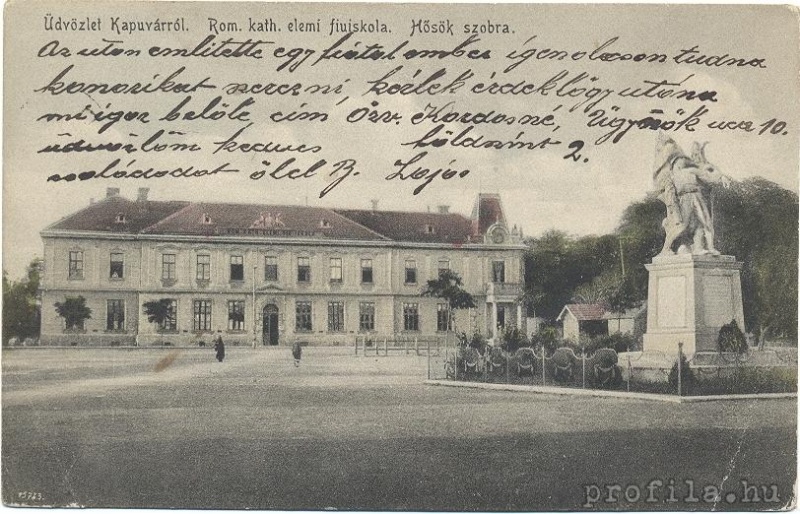 Üdvözlet Kapuvárról. Rom. kath. elemi fiuiskola. Hősök szobra.
Az uton emlitette egy fiatal ember igen olcson tudna
kanarikat szerezni, kérlek érdeklőgy utána
mi igaz belőle, cím Özv. Kardosné, Ügyészök ucca 10.
üdvözlöm kedves földszint 2.
családodat ölel B. Lajos
15723
profila.hu